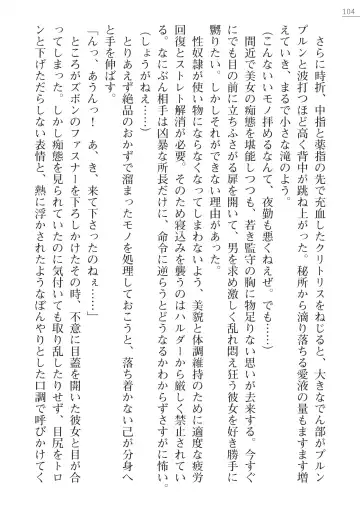 104
さらに時折、中指と薬指の先で充血したクリトリスをねじると、大きなでん部がプルン
プルンと波打つほど高く背中が跳ね上がった。秘所から滴り落ちる愛液の量もますます増
えていき、まるで小さな滝のよう。
(こんないいモノ拝めるなんて、夜勤も悪くねえぜ。でも……)
間近で美女の痴態を堪能しつつも、若き監守の胸に物足りない思いが去来する。今すぐ
にでも目の前に立ちふさがる扉を開いて、男を求め激しく乱れ悶え狂う彼女を好き勝手に
嬲りたい。しかしそれができない理由があった。
性奴隷が使い物にならなくなってしまわないよう、美貌と体調維持のために適度な疲労
回復とストレト解消が必要。そのため寝込みを襲うのはハルダーから厳しく禁止されてい
る。なにぶん相手は凶暴な所長だけに、命令に逆らうとどうなるかわからずさすがに怖い。
(しょうがねぇ……)
とりあえず絶品のおかずで溜まったモノを処理しておこうと、落ち着かない己が分身へ
と手を伸ばす。
「んっ、あうんっ！　あ、き、来て下さったのねぇ……」
ところがズボンのファスナーを下ろしかけたその時、不意に目蓋を開いた彼女と目が合
ってしまった。しかし痴態を見られていたのに気付いても取り乱したりせず、目尻をトロ
ンと下げただらしない表情と、熱に浮かされたようなぼんやりとした口調で呼びかけてく